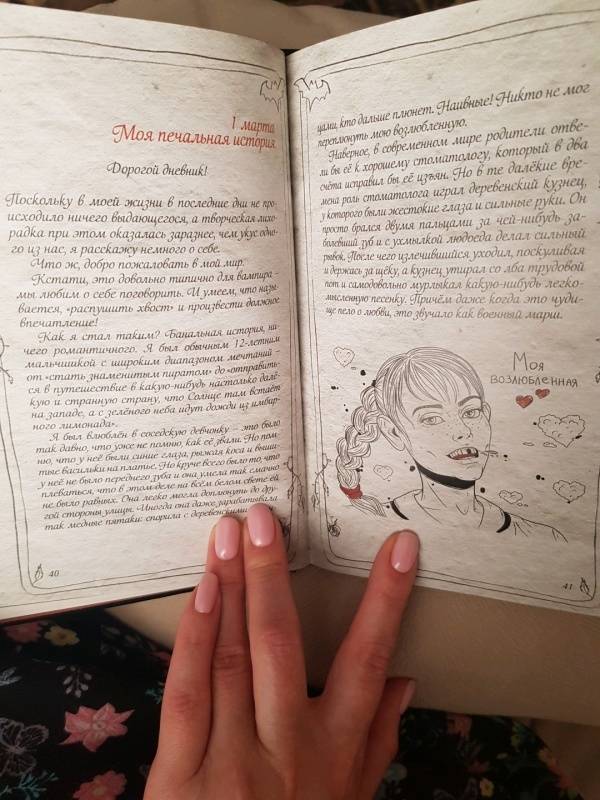 1 марта
Моя печальная история.
Дорогой дневник!
Поскольку в моей жизни в последние дни не про-
исходило ничего выдающегося, а творческая лихо-
радка при этом оказалась заразнее, чем укус одно-
го из нас, я расскажу немного о себе.
Что ж, добро пожаловать в мой мир.
Кстати, это довольно типично для вампира –
мы любим о себе поговорить. И умеем, что назы-
вается, «распушить хвост» и произвести должное
впечатление!
Как я стал таким? Банальная история, ни-
чего романтичного. Я был обычным 12-летним
мальчишкой с широким диапазоном мечтаний –
от «стать знаменитым пиратом» до «отправить-
ся в путешествие в какую-нибудь настолько далё-
кую и странную страну, что Солнце там встаёт
на западе, а с зелёного неба идут дожди из имбир-
ного лимонада».
Я был влюблён в соседскую девчонку – это было
так давно, что уже не помню, как её звали. Но пом-
ню, что у неё были синие глаза, рыжая коса и выши-
тые васильки на платье. Но круче всего было то, что
у неё не было переднего зуба и она умела так смачно
плеваться, что в этом деле на всём белом свете ей
не было равных. Она легко могла доплюнуть до дру-
гой стороны улицы. Иногда она даже зарабатывала
так медные пятаки: спорила с деревенскими
40
цами, кто дальше плюнет. Наивные! Никто не мог
переплюнуть мою возлюбленную.
Наверное, в современном мире родители отве-
ли бы её к хорошему стоматологу, который в два
счёта исправил бы её изъян. Но в те далёкие вре-
мена роль стоматолога играл деревенский кузнец,
у которого были жестокие глаза и сильные руки. Он
просто брался двумя пальцами за чей-нибудь за-
болевший зуб и с ухмылкой людоеда делал сильный
рывок. После чего излечившийся уходил, поскуливая
и держась за щёку, а кузнец утирал со лба трудовой
пот и самодовольно мурлыкал какую-нибудь легко-
мысленную песенку. Причём даже когда это чуди-
ще пело о любви, это звучало как военный марш.
Моя
возлюбленная
41